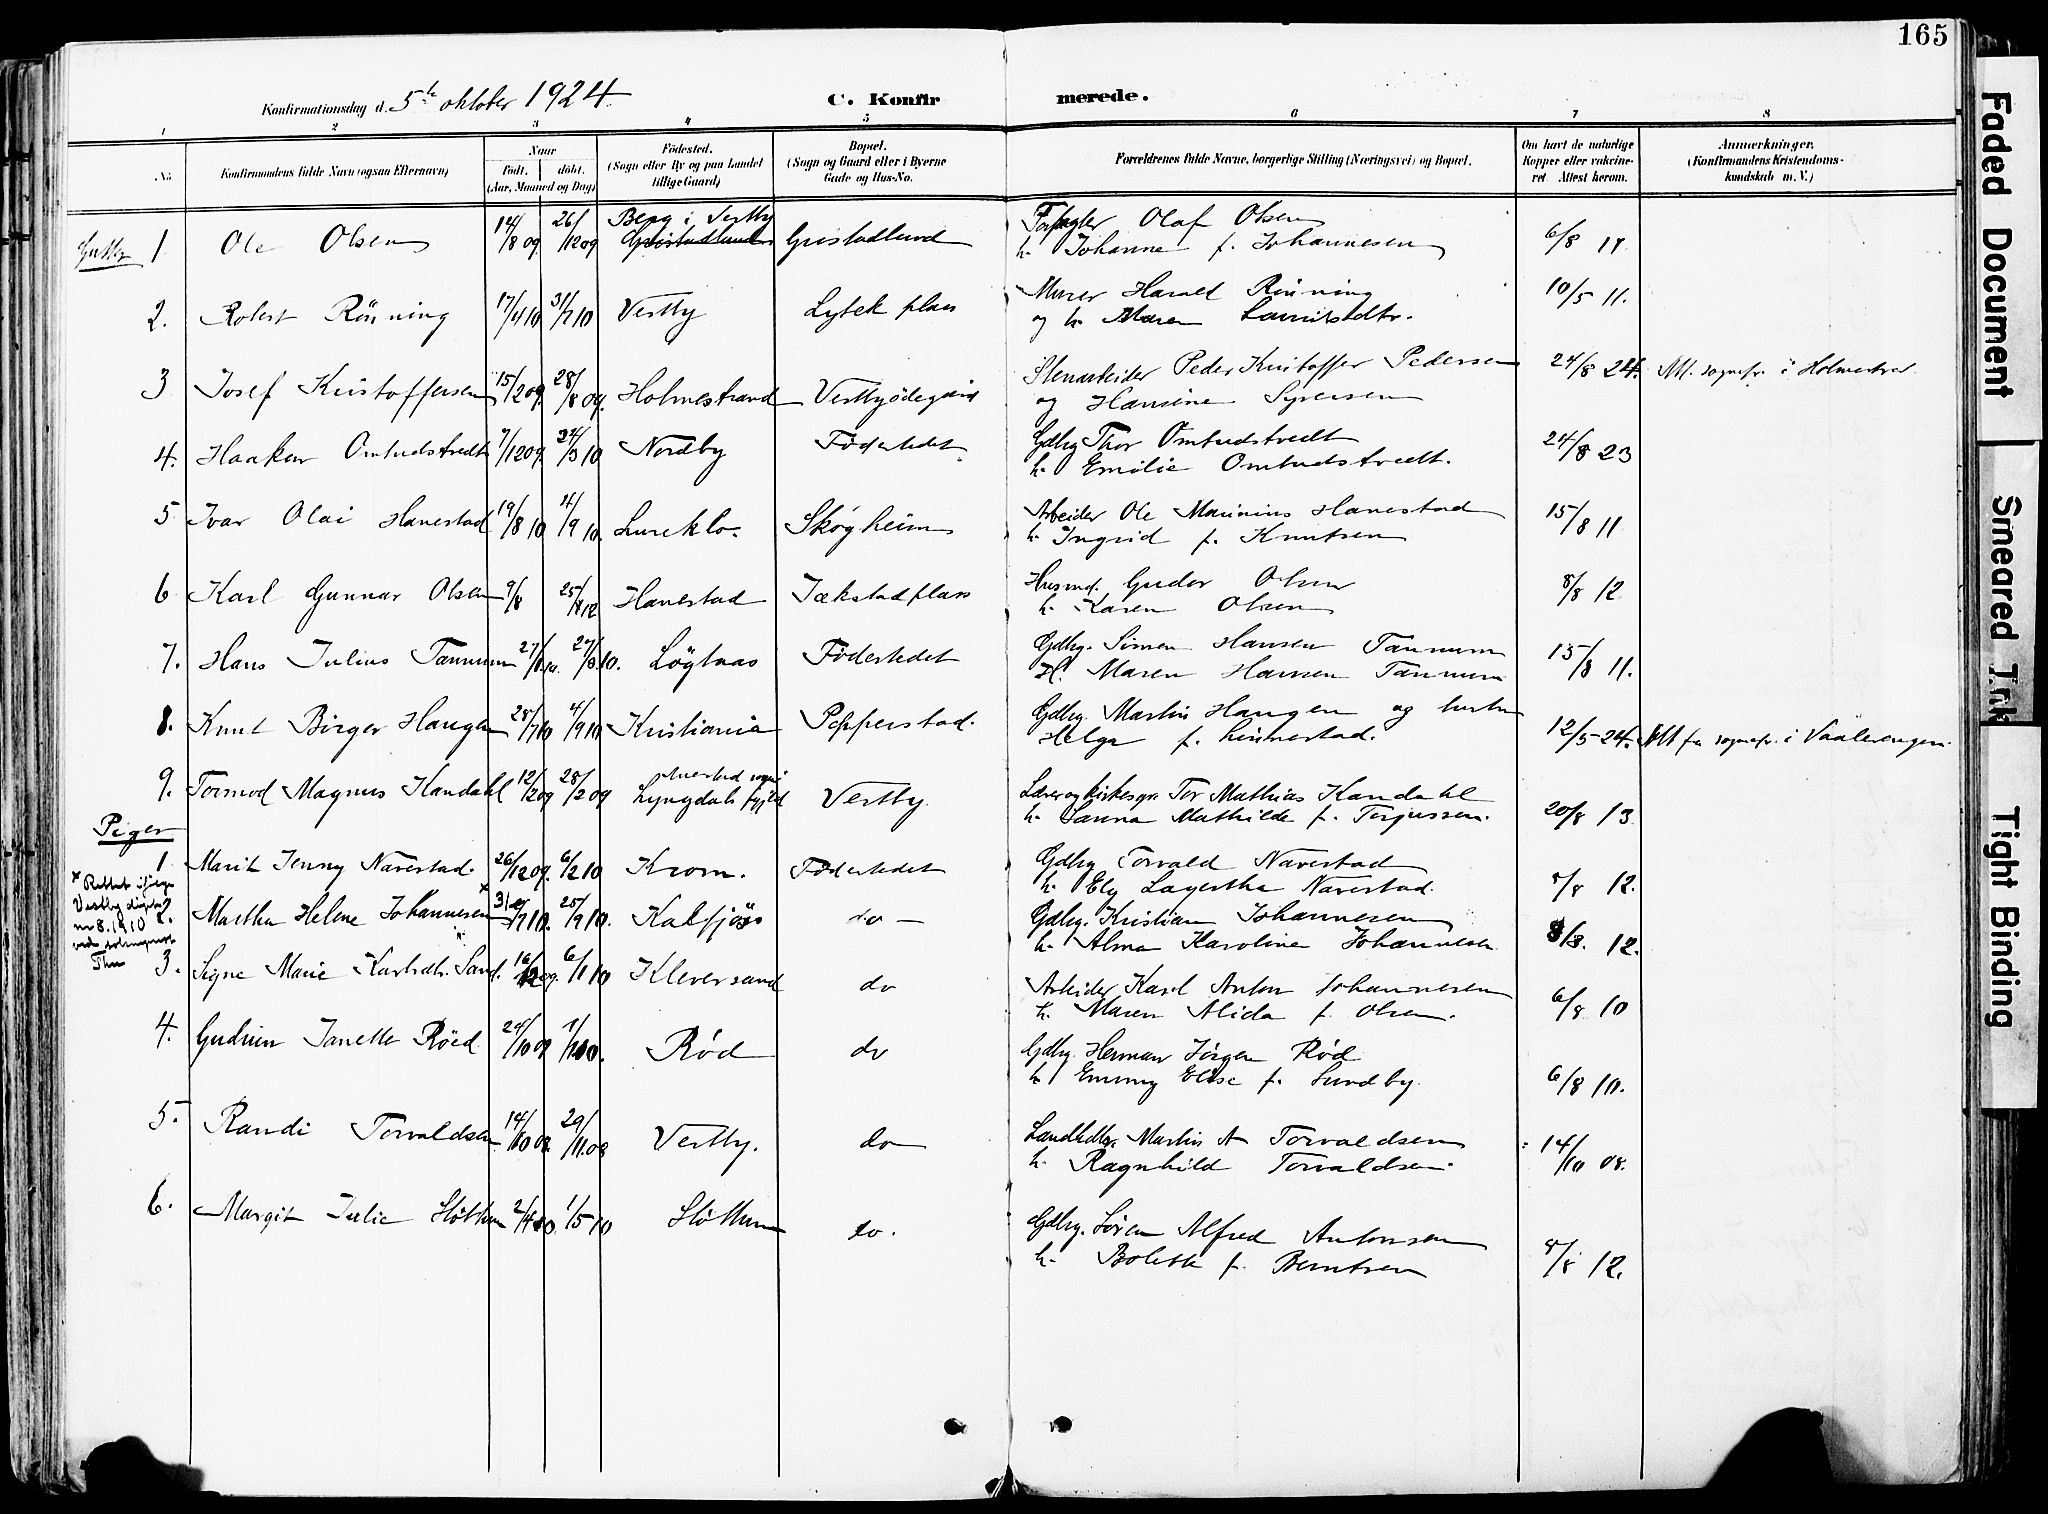 165
Konfirmationsdag d. 5te oktober 1924.
C. Konfirmerede.
1 2 3 4 5 6 7 8
No.
Konfirmandens fulde Navn (ogsaa Efternavn)
Naar født. døbt. (Aar, Maaned og Dag)
Fødested. (Sogn eller By og paa Landet tillige Gaard)
Bopæl. (Sogn og Gaard eller i Byerne Gade og Hus-No.
Forældrenes fulde Navne, borgerlige Stilling (Næringsvei) og Bopæl.
Om havt de naturlige Kopper eller vakcineret. Attest herom.
Anmerkninger. (Konfirmandens Kristendomskundskab m. V.)
Gutter
1 Ole Olsen 14/8 09 26/12 09 Berg i Vestby Gristadlund Gristadlund Olaf Olsen h. Johanne f. Johannesen 6/8 11
2. Robert Rönning 17/4 10 31/7 10 Vestby Lytek plas Murer Harald Rönning og h. Maren 10/5 11.
3 Josef Kristoffersen 15/2 09. 28/8 09. Holmestrand Vestbyödegård Stenarbeider Peder Kristoffer Pedersen og Hansine Syversen 24/8 24. Att. sognepr. i Holmestrand
4. Haakon Omtvedtstvedt 7/12 09. 24/3 10 Nordby Födestedet Gdbr. Thor h. Emilie 24/8 23
5 Ivar Olai Hanestad 19/8 10 4/9 10. Lureklo. Skógheim Arbeider Ole Marinius Hanestad h. Ingrid f. Knutsen 15/8 11
6 Karl Gunnar Olsen 9/8 25/8 12 Hanestad Jækstadplass Husmd. Gudor Olsen h. Karen Olsen 8/8 12
7. Hans Julius Tannum 27/6 10. 27/8 10. Lögtnas Födestedet Gdbr. Simen Hansen Tannum H. Maren Hansen Tannum 15/8 11.
8. Knut Birger Haugen 28/7 10 4/9 10 Kristiania Pepperstad. Gdbr. Martin Haugen og hustru Helga f. Linnestad. 12/5-24. Att fra sognepr. i Vaalerengen.
9. Tormod Magnus Kandahl 12/2 09 28/2 09 sogn Lyngdals Vestby. Lærer og kirkesgr. Tor Mathias Kandahl h. Janna Mathilde f. Torjussen. 20/8 13
Piger
1. Marit Jenny Navestad. 26/12 09. 6/2 10 Krom. Födestedet Gdbr Torvald Navestad h. Ely Lagertha Navestad. 8/8 12.
× Rettet ifølge Vestby nr 8. 1910
2. Martha Helene Johannesen × 31/7 10. 25/9 10. Kalfjös do — Gdbr. Kristian Johannesen h. Alma Karoline Johannesen 8/8. 12.
3. Signe Marie Karlsdtr. Sand. 16/12 09. 6/1 10 Kleversand do Arbeider Karl Anton Johannesen h. Maren Alida f. Olsen. 6/8 10
4. Gudrun Janette Röed 24/10 09 1/1 10. Röd do Gdbr. Herman Jörgen Röd h Emmy Elise f. Sundby. 6/8 10.
5. Randi Torvaldsen 14/10 08. 29/11. 08 Vestby. do Landhdlr. Martin A Torvaldsen h. Ragnhild Torvaldsen. 14/10 08.
6. Margit Julie Slöttum 2/4 10. 1/5 10 Slöttum do. Gdbr. Sören Alfred Antonsen h. Bolette f. Berntsen 8/8 12.
Faded Document
Smeared Ink
Tight Binding